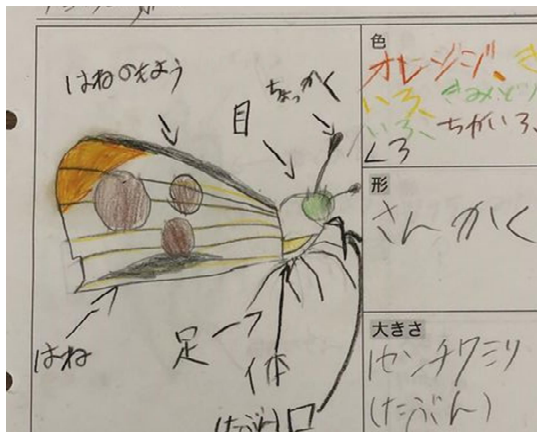 はねのもよう
目
ちょっかく
はね
足
体
(たぶん)口
色
オレンジジ、き
いろ、きみどり
いろ、ちがいろ、
くろ
形
さんかく
大きさ
1センチ9ミリ
(たぶん)